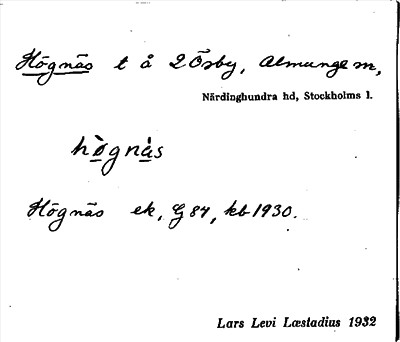 Högnäs t å 2 Ösby, Almunge sn,
Närdinghundra hd, Stockholms l.
hògnàs
Högnäs ek, G 84, kb 1930.
Lars Levi Læstadius 1932